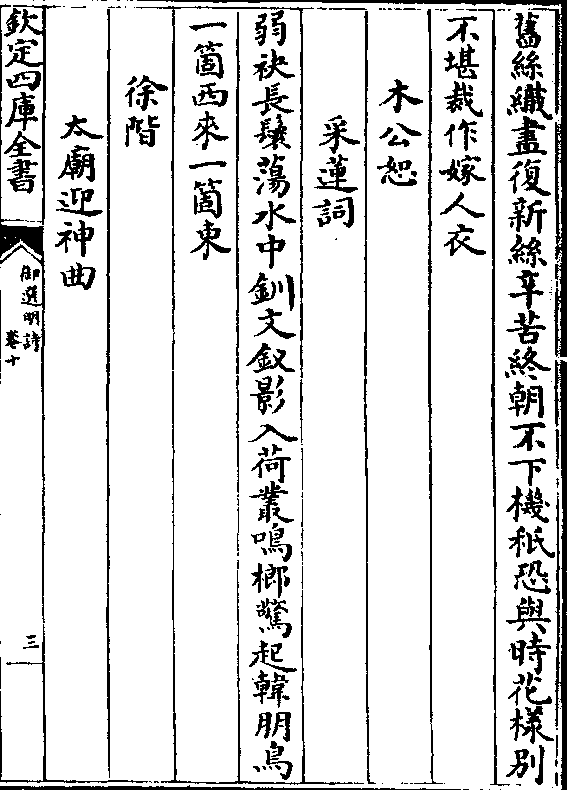 舊絲織盡復新絲辛苦終朝不下機秪恐與時花樣别
不堪裁作嫁人衣
木公恕
采蓮詞
弱袂長鬟蕩水中釧文釵影入荷叢鳴榔驚起韓朋鳥
一箇西來一箇東
徐階
太廟迎神曲
欽定四庫全書
御選明詩
卷十
三